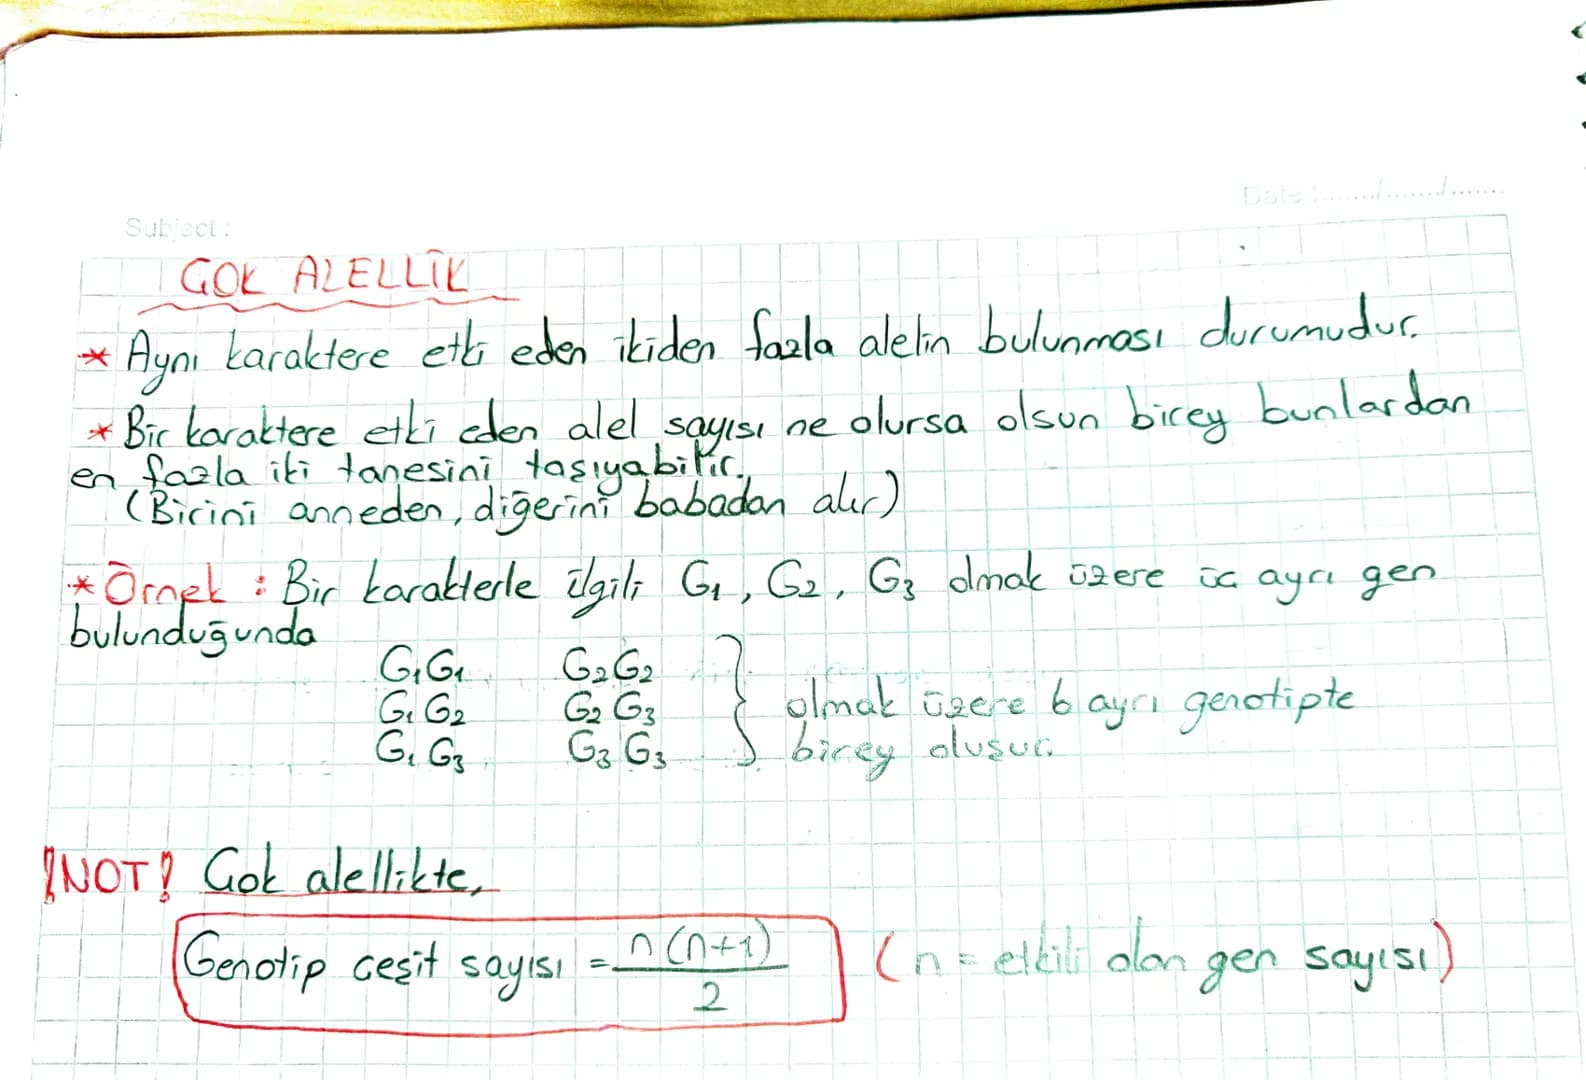 Date :....../......./.......
Subject :
ÇOK ALELLİK
* Aynı karaktere etki eden ikiden fazla alelin bulunması durumudur.
* Bir karaktere etki eden alel sayısı ne olursa olsun birey bunlardan
en fazla iki tanesini taşıyabilir.
(Birini anneden, diğerini babadan alır)
* Örnek : Bir karakterle ilgili G₁, G₂, G₃ olmak üzere üç ayrı gen
bulunduğunda
G₁G₁ G₂G₂
G₁G₂ G₂G₃ } olmak üzere 6 ayrı genotipte
G₁G₃ G₃G₃ birey oluşur.
!NOT! Çok alellikte,
Genotip çeşit sayısı = n(n+1)/2 (n = etkili olan gen sayısı)